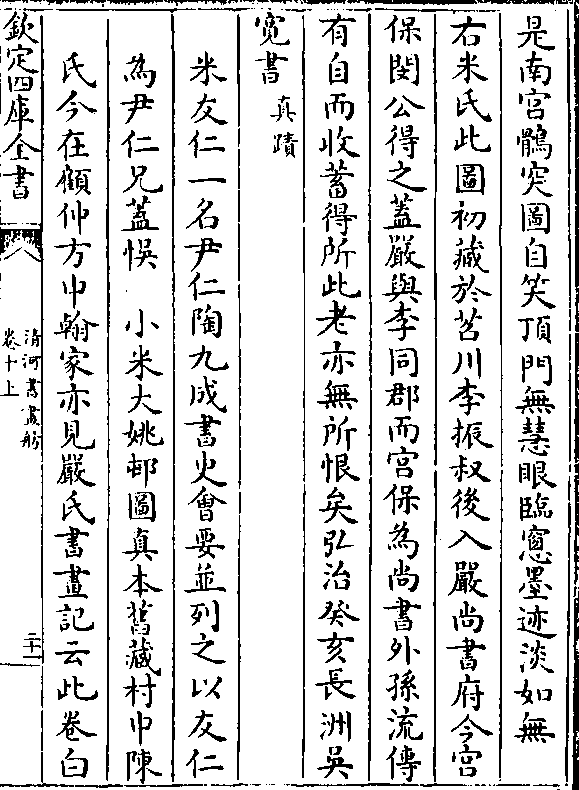 是南宮鶻突圖自笑頂門無慧眼臨窻墨迹淡如無
右米氏此圖初藏於苕川李振叔後入嚴尚書府今宮
保閔公得之蓋嚴與李同郡而宮保為尚書外孫流傳
有自而收蓄得所此老亦無所恨矣弘治癸亥長洲吳
寛書 真蹟
米友仁一名尹仁陶九成書史會要並列之以友仁
為尹仁兄蓋悞 小米大姚邨圖真本舊藏村中陳
氏今在顧仲方中翰家亦見嚴氏書畫記云此卷白
欽定四庫全書
清河書畫舫
卷十上
二十一